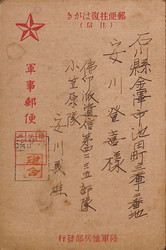 郵便往復はがき
(往信)
軍事郵便
石川縣金澤市池田町三番丁二番地
安川登喜様
佛印派遣信第二三五部隊
小笠原隊
安川
陸軍恤兵部發行